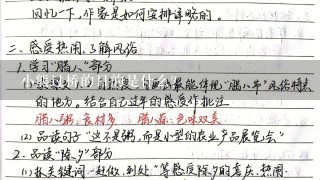 回忆一下,作家是如何安排详略的。
二、感受热闹,了解风俗
1.学习"腊八"部分
最能体现"腊八节"风俗特点
的地方。结合自己过年的感受作批注
腊八粥:食材多 腊八蒜:色味双美
(2)品读句子"这不是粥,而是小型的农业产品展览会"
2.品读"除夕"部分
(1)抓关键词"赶做、到处"等感受除夕的喜庆、热闹.
小熊过桥的目的是什么